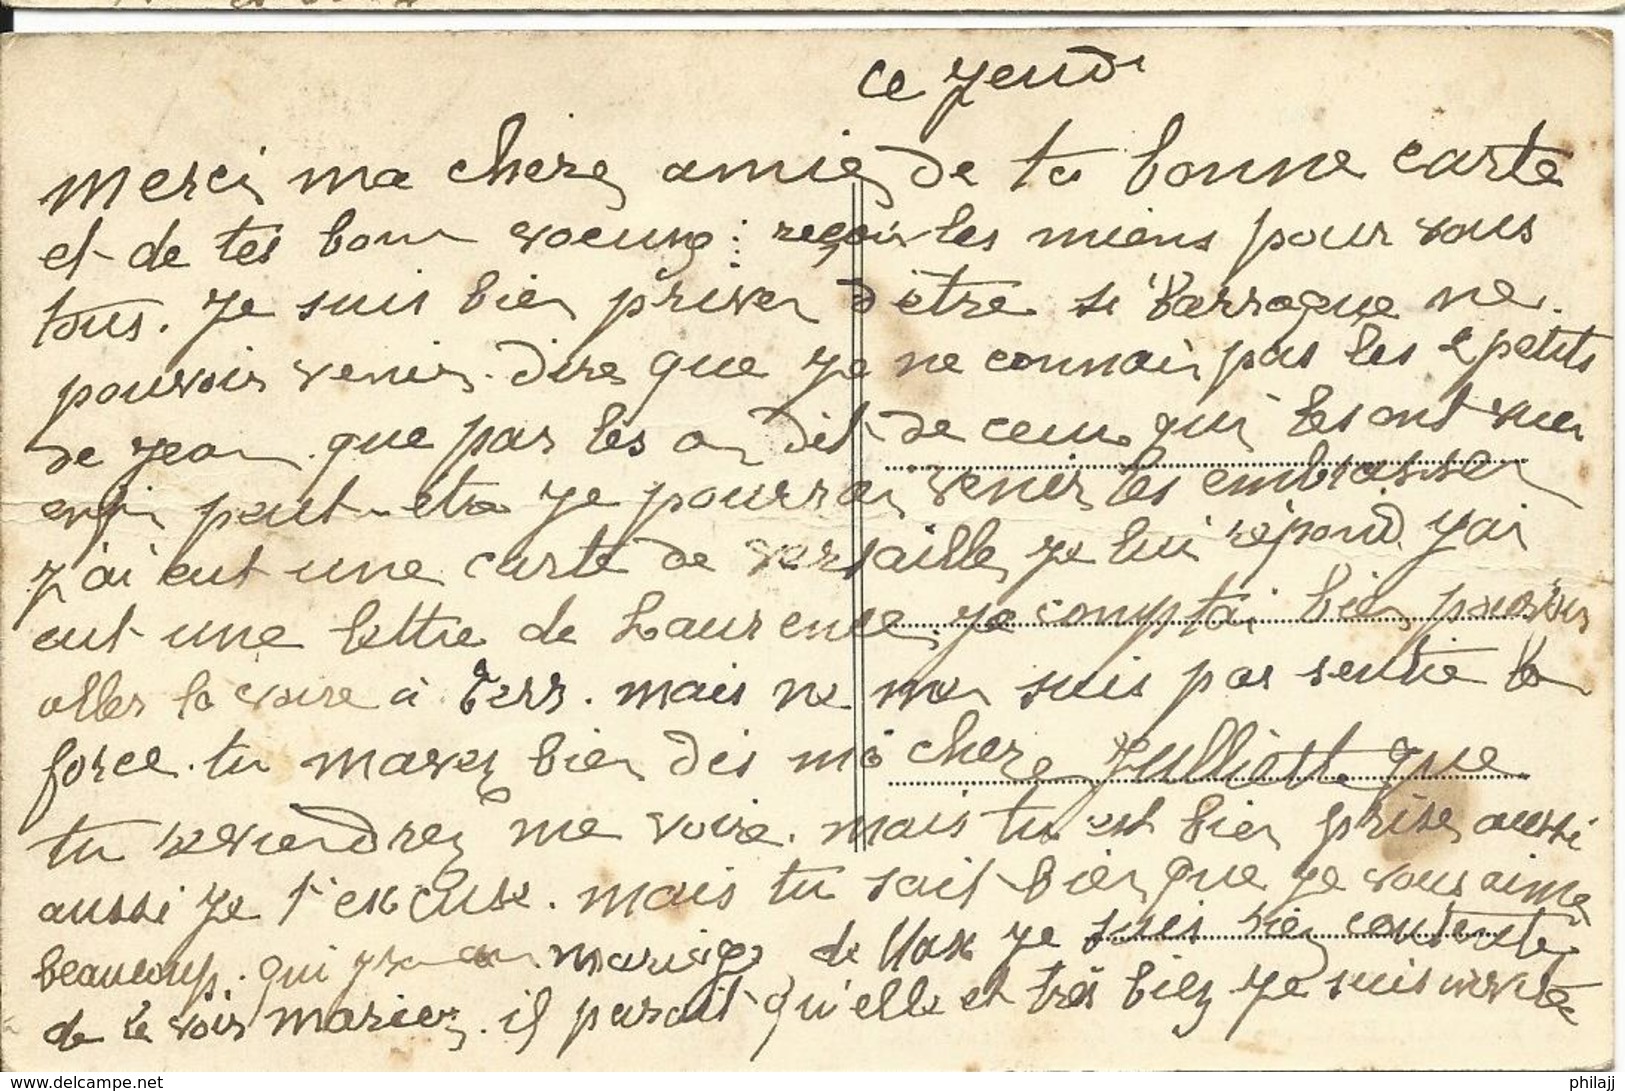 ce jeudi
Merci ma chere amie de ta bonne carte
et de tes bon voeux : reçoir les miens pour vous
tous. Je suis bien priver d'être si Barraque ne
pouvoir venir. dire que je ne connai pas les 2 petits
de jean. que par les on dit de ceux qui les ont vue
enfin peut-etre je pourrai venir les embrasser
j'ai eut une carte de versaille je lui répond j'ai
eut une lettre de Laurence. je comptai bien pouvoir
aller la voire à mais ne me suis pas sentie la
force. tu mavez bien dis ma chere Julliette que
tu reviendrez me voire. mais tu est bien prise aussi
aussi je t'excuse. mais tu sait bien que je vous aime
beaucoup. qui mariage de Max je suis bien contente
de le voir marier. il parait qu'elle et très bien je suis invitée
www.delcampe.net
philajj